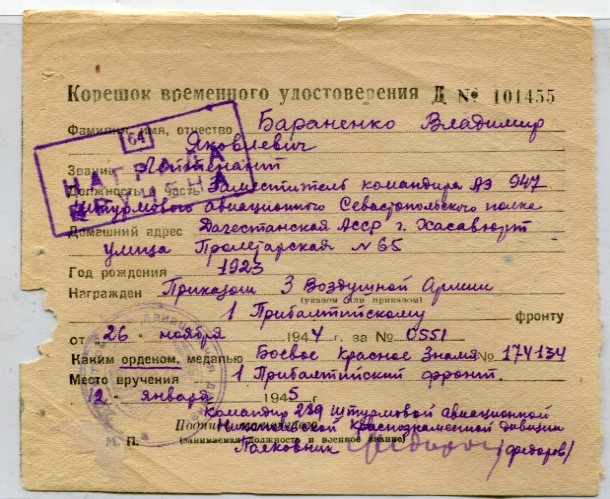 Корешок временного удостоверения Д № 101455
Фамилия, имя, отчество Бараненко Владимир
Яковлевич
64
НАГРАДА
ВРУЧЕНА
Звание Лейтенант
Должность и часть Заместитель командира АЭ 947
Штурмового авиационного Севастопольского полка
Домашний адрес Дагестанская АССР г. Хасавюрт
улица Пролетарская N 65
Год рождения 1923
Награжден Приказом 3 Воздушной Армии
(указом или приказом)
1 Прибалтийскому фронту
от 26 - ноября 1944 г. за № 0551
Каким орденом, медалью Боевое Красное Знамя № 174134
Место вручения 1 Прибалтийский фронт.
12 - января 1945 г
Командир 289 Штурмовой Авиационной
Никопольской Краснознаменной дивизии
Подпись
М. П. (занимаемая должность и военное звание)
Полковник (Федоров)